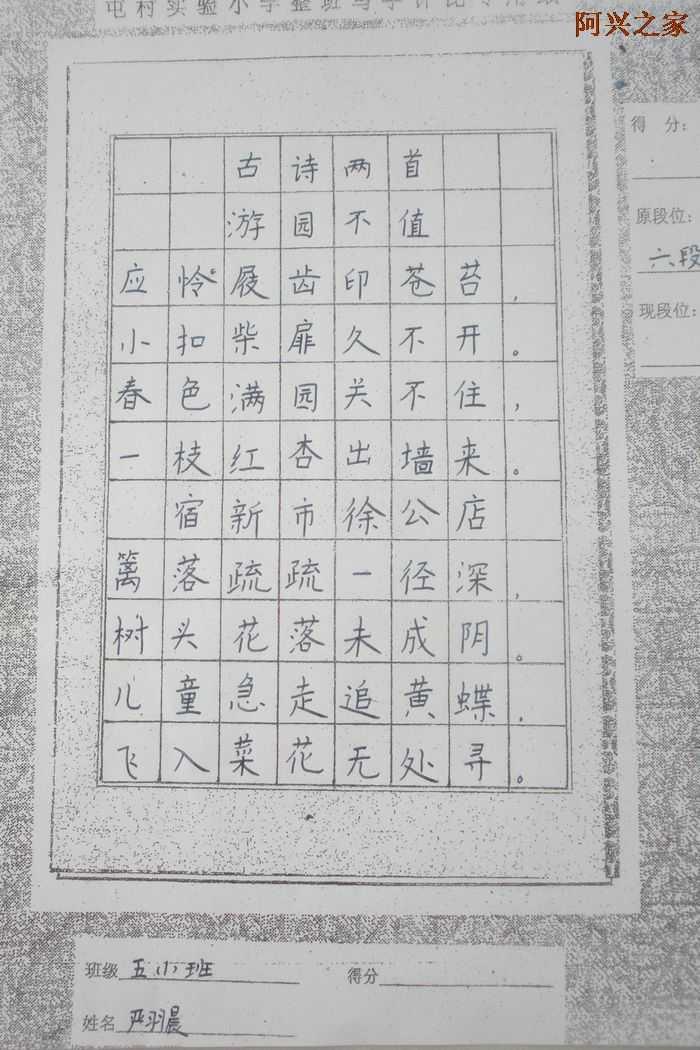 屯村实验小学整班写字评比专用纸
阿兴之家
得 分：
原段位：
六段
现段位：
古诗两首
游园不值
应怜屐齿印苍苔，
小扣柴扉久不开。
春色满园关不住，
一枝红杏出墙来。
宿新市徐公店
篱落疏疏一径深，
树头花落未成阴。
儿童急走追黄蝶，
飞入菜花无处寻。
班级 五（1）班 得分
姓名 严羽晨